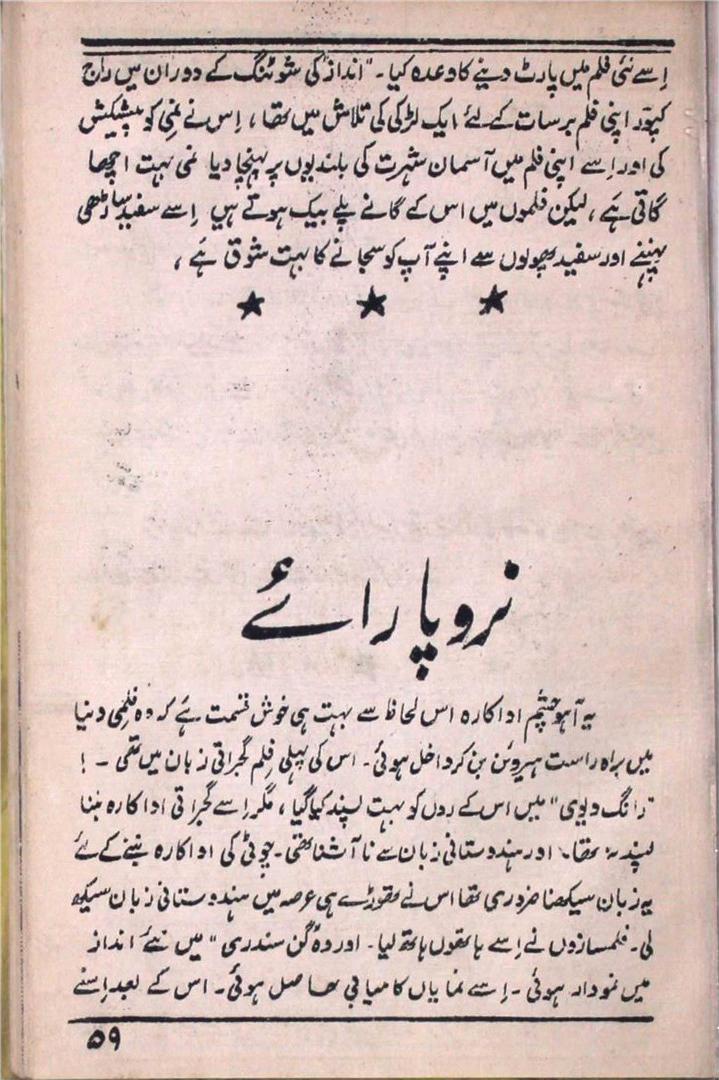 اسے نئی فلم میں پارٹ دینے کا وعدہ کیا۔ "انداز" کی شوٹنگ کے دوران میں راج
کپور اپنی فلم برسات کے لئے ایک لڑکی کی تلاش میں تھا، اس نے نمی کو پیشکش
کی اور اسے اپنی فلم میں آسمان شہرت کی بلندیوں پر پہنچا دیا نمی بہت اچھا
گاتی ہے، لیکن فلموں میں اس کے گانے پلے بیک ہوتے ہیں اسے سفید ساڑھی
پہننے اور سفید پھولوں سے اپنے آپ کو سجانے کا بہت شوق ہے،
★ ★ ★
نروپا رائے
یہ آہو چشم اداکارہ اس لحاظ سے بہت ہی خوش قسمت ہے کہ وہ فلمی دنیا
میں براہ راست ہیروئن بن کر داخل ہوئی۔ اس کی پہلی فلم گجراتی زبان میں تھی -!
"رانگ دیوی" میں اس کے رول کو بہت پسند کیا گیا، مگر اسے گجراتی اداکارہ بننا
پسند نہ تھا۔ اور ہندوستانی زبان سے نا آشنا تھی۔ چوٹی کی اداکارہ بننے کے لئے
یہ زبان سیکھنا ضروری تھا اس نے تھوڑے ہی عرصہ میں ہندوستانی زبان سیکھ
لی۔ فلمسازوں نے اسے ہاتھوں ہاتھ لیا۔ اور وہ "گن سندری" میں نئے انداز
میں نمودار ہوئی۔ اسے نمایاں کامیابی حاصل ہوئی۔ اس کے بعد اسنے
۵۹